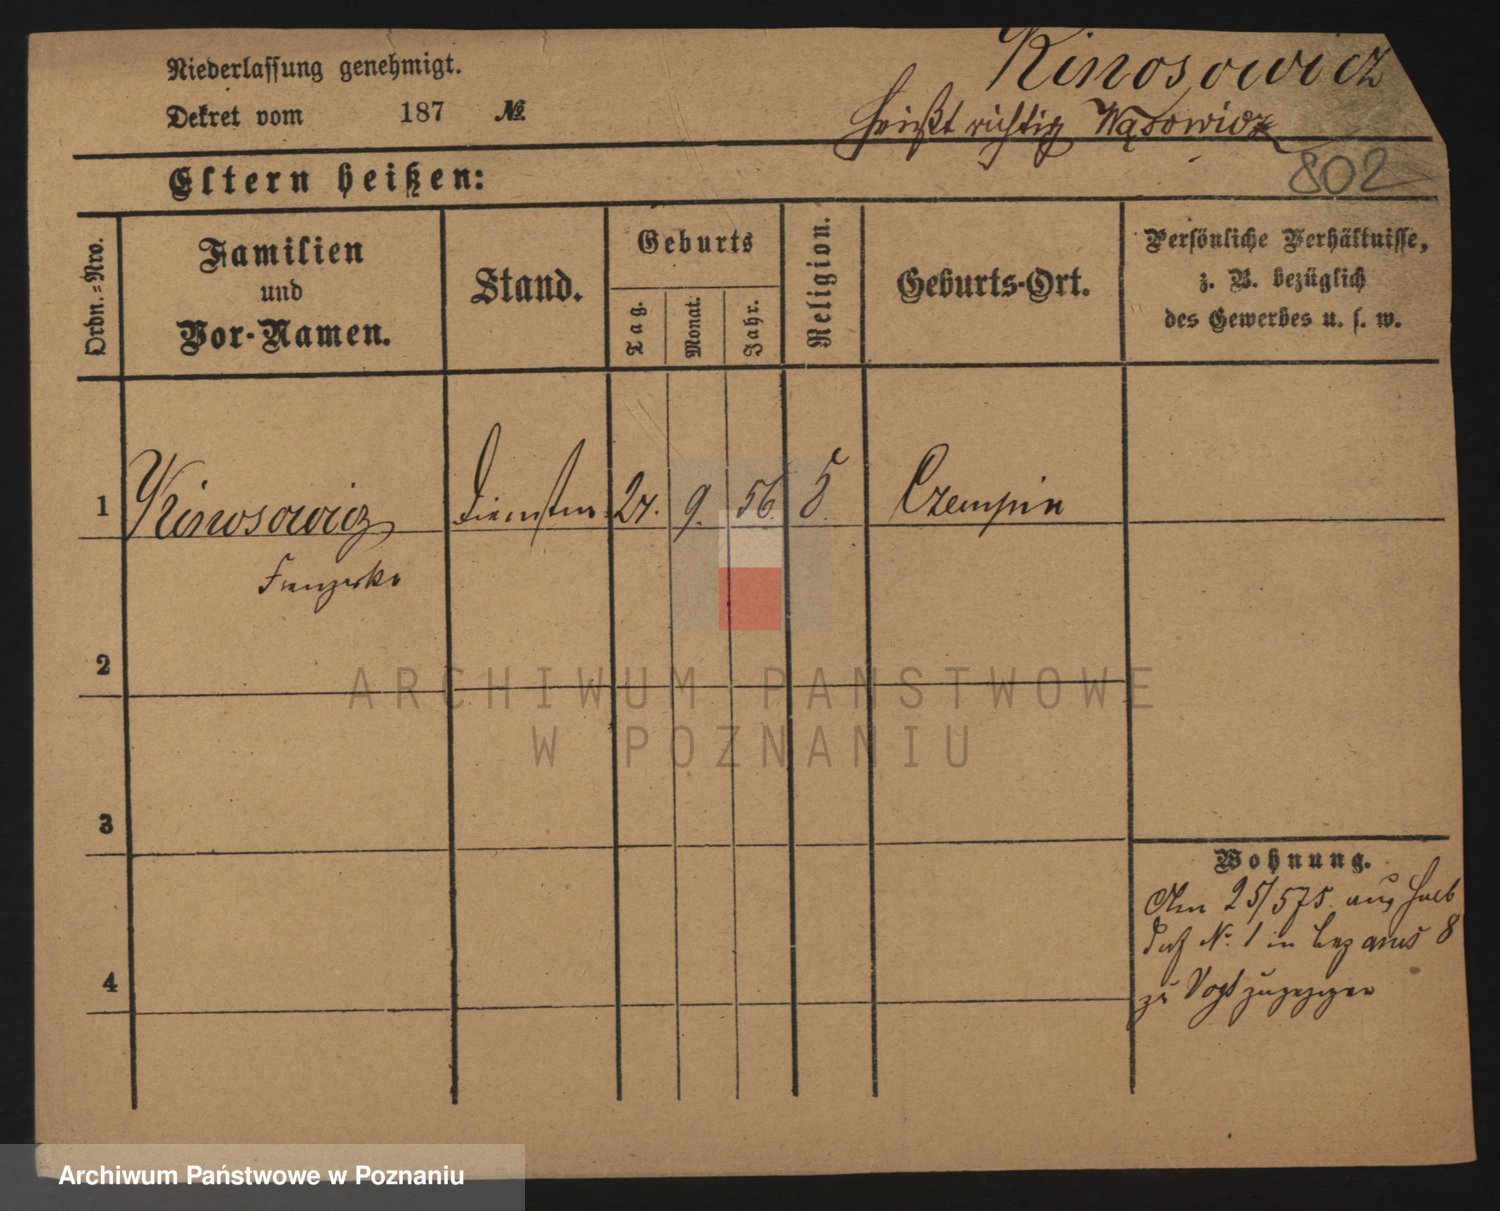 Niederlassung genehmigt.
Dekret vom 187 №
Kinosowicz
heißt richtig Wąsowicz
802
Eltern heißen:
Ordn.=Nro.
Familien
und
Vor-Namen.
Stand.
Geburts
Tag.
Monat.
Jahr.
Religion.
Geburts-Ort.
Persönliche Verhältnisse,
z. B. bezüglich
des Gewerbes u. s. w.
1 Kinosowicz 9. 56. Czempin
2
3
4
Wohnung.
Am 25/5 75. aus
No. 1 in
zu Vogt zugezogen
ARCHIWUM PAŃSTWOWE
W POZNANIU
Archiwum Państwowe w Poznaniu